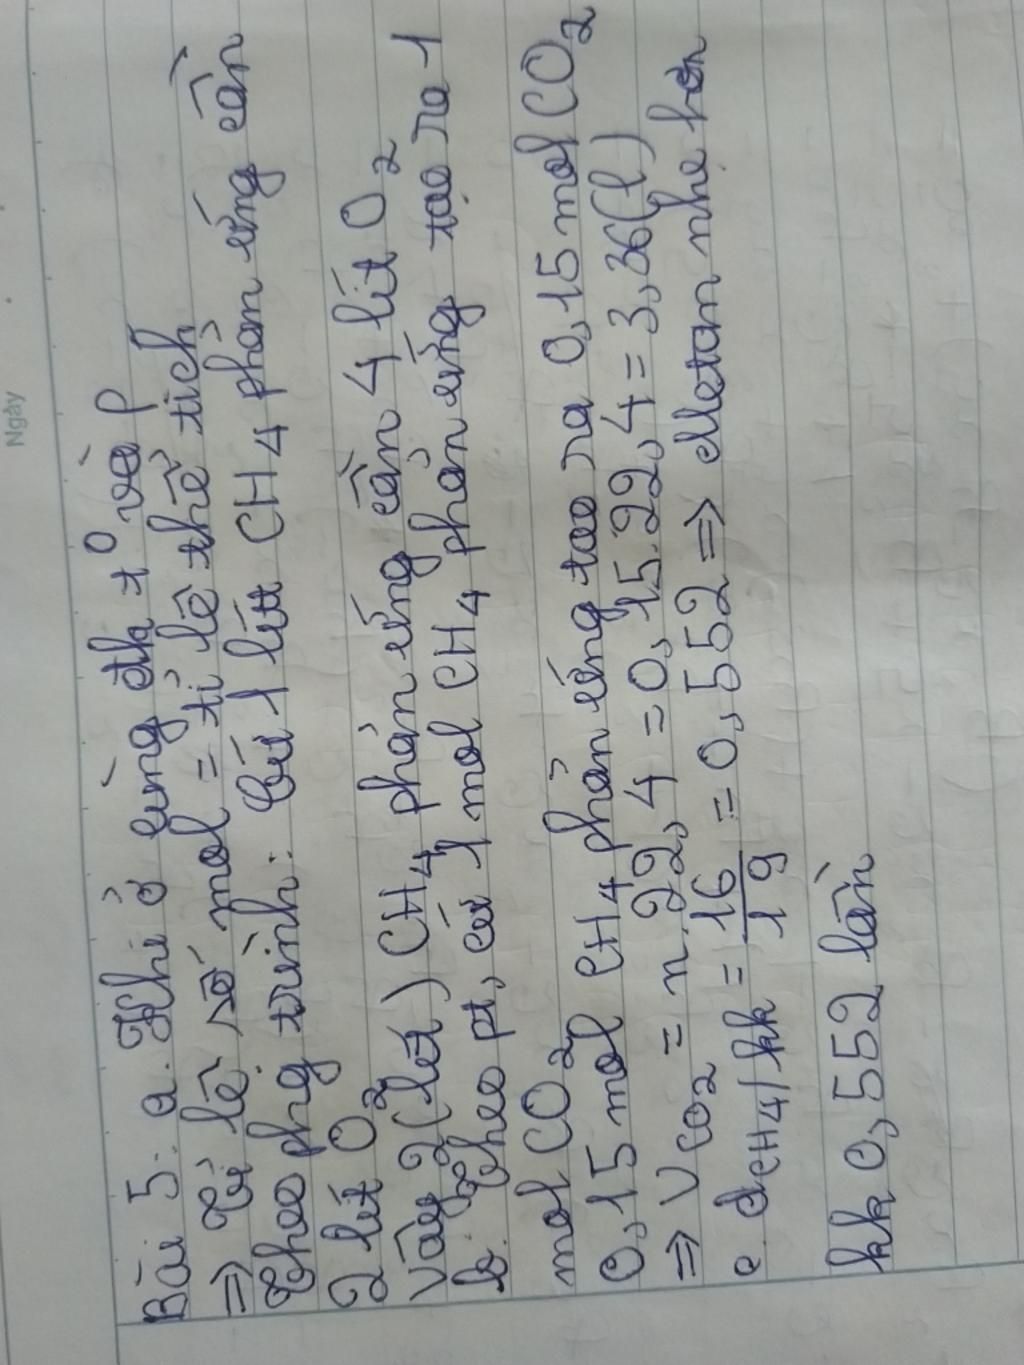 Ngày
Bài 5: a. Khi ở cùng đk t° và p
=> Tỉ lệ số mol = tỉ lệ thể tích
Theo phg trình: Cứ 1 lít CH4 phản ứng cần
2 lít O2
Vậy 2 (lít) CH4 phản ứng cần 4 lít O2
b. Theo pt, cứ 1 mol CH4 phản ứng tạo ra 1
mol CO2
0,15 mol CH4 phản ứng tao ra 0,15 mol CO2
=> VCO2 = n.22,4 = 0,15.22,4 = 3,36(l)
c. dCH4/kk = 16/19 = 0,552 => Metan nhẹ hơn
kk 0,552 lần